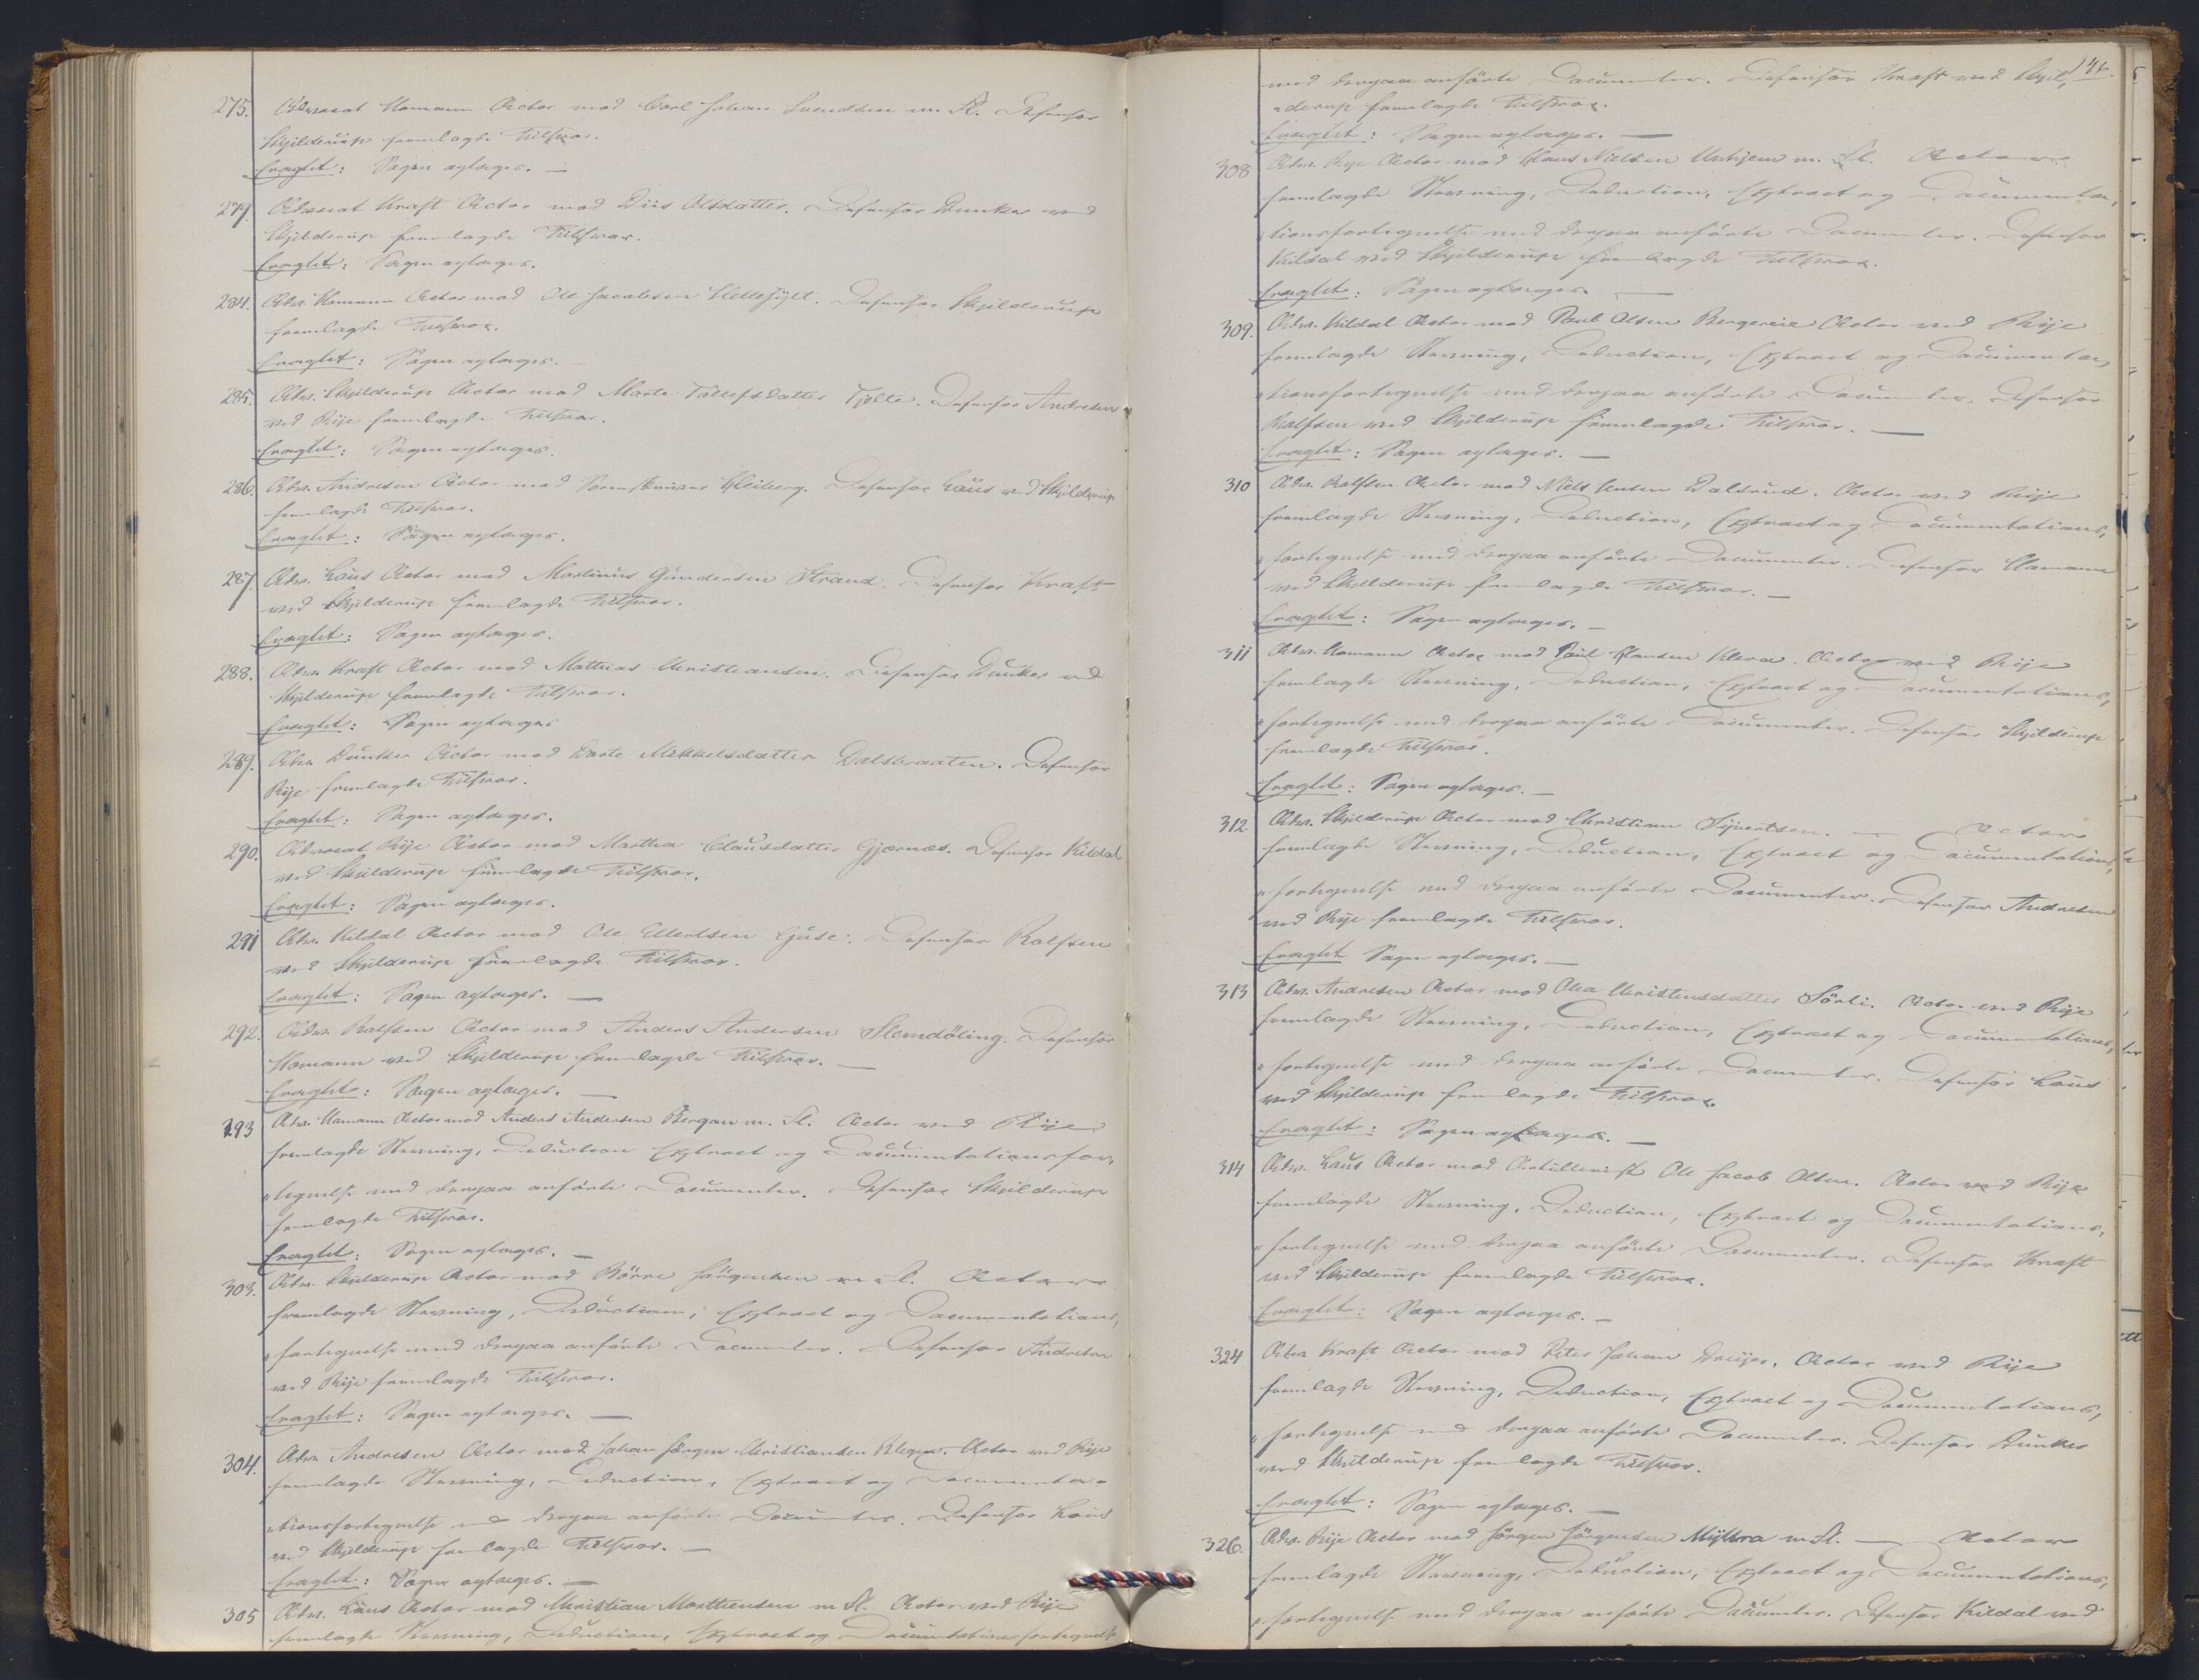 275. Advocat Homann Actor mod Carl Johan Svendsen m. Fl. Defensor
Skjilderup fremlagde Tilsvar.
Eragtet: Sagen optages. —
279. Advocat Kraft Actor mod Olsdatter. Defensor Dunker ved
Skjilderup fremlagde Tilsvar.
Eragtet: Sagen optages.
284. Adv. Homann Actor mod Ole Jacobsen Hellesylt. Defensor Skjilderup
fremlagde Tilsvar.
Eragtet: Sagen optages. —
285. Adv. Skjilderup Actor mod Marte Tollefsdatter Tjolte. Defensor Andresen
ved Rije fremlagde Tilsvar.
Eragtet: Sagen optages.
286. Adv. Andresen Actor mod Heiberg. Defensor Laus ved Skjilderup
fremlagde Tilsvar.
Eragtet: Sagen optages.
287. Adv. Laus Actor mod Martinus Gundersen Strand. Defensor Kraft
ved Skjilderup fremlagde Tilsvar.
Eragtet: Sagen optages.
288. Adv. Kraft Actor mod Mattias Christiansen. Defensor Dunker ved
Skjilderup fremlagde Tilsvar.
Eragtet: Sagen optages
289. Adv. Dunker Actor mod Dorte Mikkelsdatter Dalsbraaten. Defensor
Rije fremlagde Tilsvar.
Eragtet: Sagen optages.
290. Advocat Rije Actor mod Marthea Clausdatter Gjærnæs. Defensor Kildal
ved Skjilderup fremlagde Tilsvar.
Eragtet: Sagen optages.
291 Adv. Kildal Actor mod Ole Ellertsen Defensor Rolfsen
ved Skjilderup fremlagde Tilsvar.
Eragtet: Sagen optages. —
292. Adv. Rolfsen Actor mod Anders Andersen Slemdöling. Defensor
Homann ved Skjilderup fremlagde Tilsvar. —
Eragtet: Sagen optages. —
293 Adv. Homann Actor mod Anders Andersen Bergan m. Fl. Actor ved Rije
fremlagde Stevning, Deduction Extract og Documentationsfor,
"tegnelse med derpaa anförte Documenter. Defensor Skjilderup
fremlagde Tilsvar.
Eragtet: Sagen optages. —
303. Adv. Skjilderup Actor mod Börre Jörgensen m. Fl. Actor
fremlagde Stevning, Deduction, Extract og Documentations,
"fortegnelse med derpaa anförte Documenter. Defensor Andresen
ved Rije fremlagde Tilsvar.
Eragtet: Sagen optages. —
304. Adv. Andresen Actor mod Johan Jörgen Christiansen Blegen. Actor ved Rije
fremlagde Stevning, Deduction, Extract og Documenta-
"tionsfortegnelse med derpaa anförte Documenter. Defensor Laus
ved Skjilderup fremlagde Tilsvar. —
Eragtet: Sagen optages. —
305 Adv. Laus Actor mod Christian Marthiensen m. Fl. Actor ved Rije
fremlagde Stevning, Deduction, Extract og Documentationsfortegnelse
146.
med derpaa anförte Documenter. Defensor Kraft ved Skjil,
"derup fremlagde Tilsvar.
Eragtet: Sagen optages. —
308 Adv. Rije Actor mod Hans Nielsen m. Fl. Actor
fremlagde Stevning, Deduction, Extract og Documenta,
"tionsfortegnelse med derpaa anförte Documenter. Defensor
Kildal ved Skjilderup fremlagde Tilsvar.
Eragtet: Sagen optages. —
309. Adv. Kildal Actor mod Poul Olsen Bergereie Actor ved Rije
fremlagde Stevning, Deduction, Extract og Documenta,
"tionsfortegnelse med derpaa anförte Documenter. Defensor
Rolfsen ved Skjilderup fremlagde Tilsvar. —
Eragtet: Sagen optages. —
310 Adv. Rolfsen Actor mod Niels Jensen Dalsrud. Actor ved Rije
fremlagde Stevning, Deduction, Extract og Documentations,
"fortegnelse med derpaa anförte Documenter. Defensor Homann
ved Skjilderup fremlagde Tilsvar. —
Eragtet: Sagen optages. —
311 Adv. Homann Actor mod Poul Hansen Kleva. Actor ved Rije
fremlagde Stevning, Deduction, Extract og Documentations,
"fortegnelse med derpaa anförte Documenter. Defensor Skjilderup
fremlagde Tilsvar.
Eragtet: Sagen optages. —
312 Adv. Skjilderup Actor mod Christian Sijvertsen. — Actor
fremlagde Stevning, Deduction, Extract og Documentations,
"fortegnelse med derpaa anförte Documenter. Defensor Andresen
ved Rije fremlagde Tilsvar.
Eragtet Sagen optages. —
313 Adv. Andresen Actor mod Olea Christensdatter Sörli. Actor ved Rije
fremlagde Stevning, Deduction, Extract og Documentations,
"fortegnelse med derpaa anförte Documenter. Defensor Laus
ved Skjilderup fremlagde Tilsvar.
Eragtet: Sagen optages. —
314 Adv. Laus Actor mod Artillerist Ole Jacob Olsen. Actor ved Rije
fremlagde Stevning, Deduction, Extract og Documentations,
"fortegnelse med derpaa anförte Documenter. Defensor Kraft
ved Skjilderup fremlagde Tilsvar.
Eragtet: Sagen optages. —
324 Adv. Kraft Actor mod Peter Johan Actor ved Rije
fremlagde Stevning, Deduction, Extract og Documentations,
"fortegnelse med derpaa anförte Documenter. Defensor Dunker
ved Skjilderup fremlagde Tilsvar.
Eragtet: Sagen optages. —
326. Adv. Rije Actor mod Jörgen Jörgensen Myhra m. Fl. — Actor
fremlagde Stevning, Deduction, Extract og Documentations,
"fortegnelse med derpaa anförte Documenter. Defensor Kildal ved